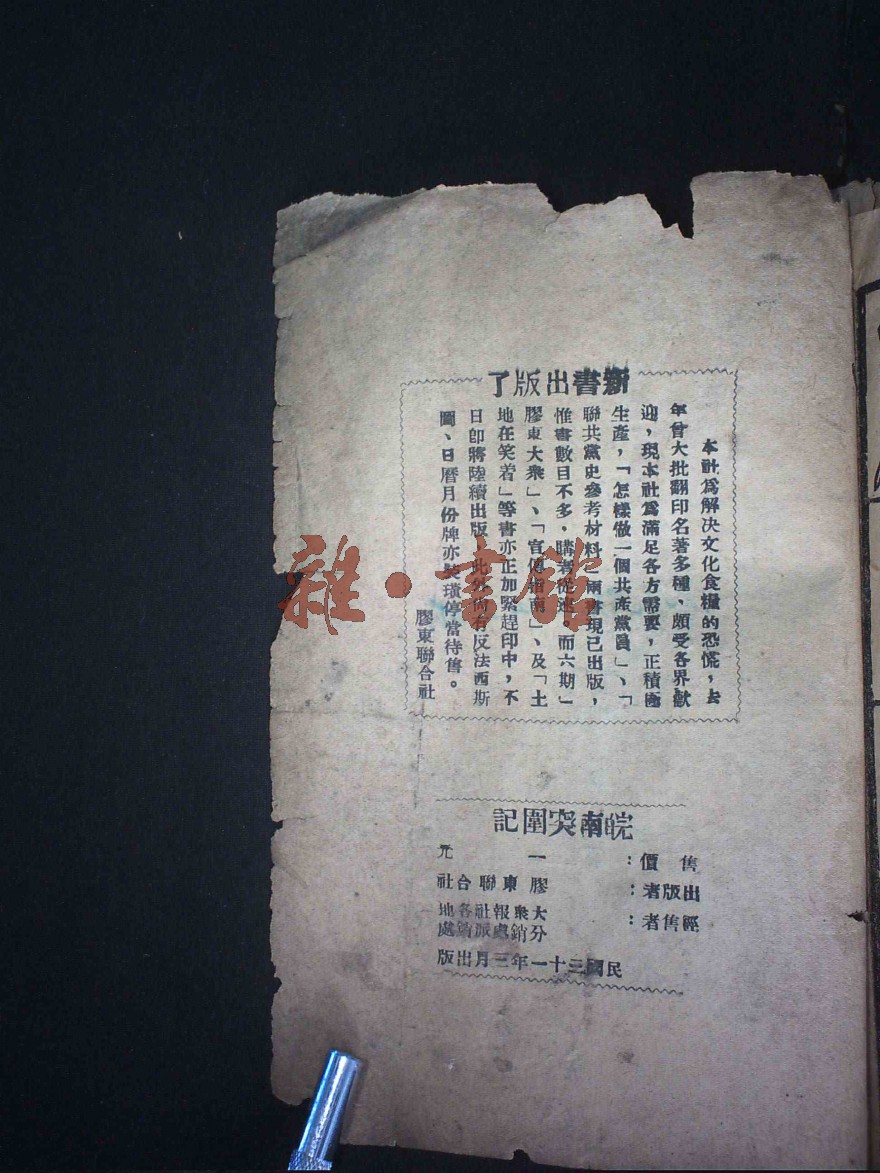 新書出版了
本社爲解决文化食糧的恐慌，去
年曾大批翻印名著多種、頗受各界歡
迎，現本社爲滿足各方需要，正積極
生產，「怎樣做一個共產黨員」、「
聯共黨史參考材料」兩書現已出版，
惟書數目不多，購者從速。而六期「
膠東大衆」、「宣傳指南」、及「土
地在笑着」等書亦正加緊趕印中，不
日即將陸續出版，此外尚有反法西斯
圖、日曆月份牌亦裝璜停當待售。
膠東聯合社
雜·書館
皖南突圍記
售價：一元
出版者：膠東聯合社
經售者：大衆報社各地
分銷處派銷處
民國三十一年三月出版